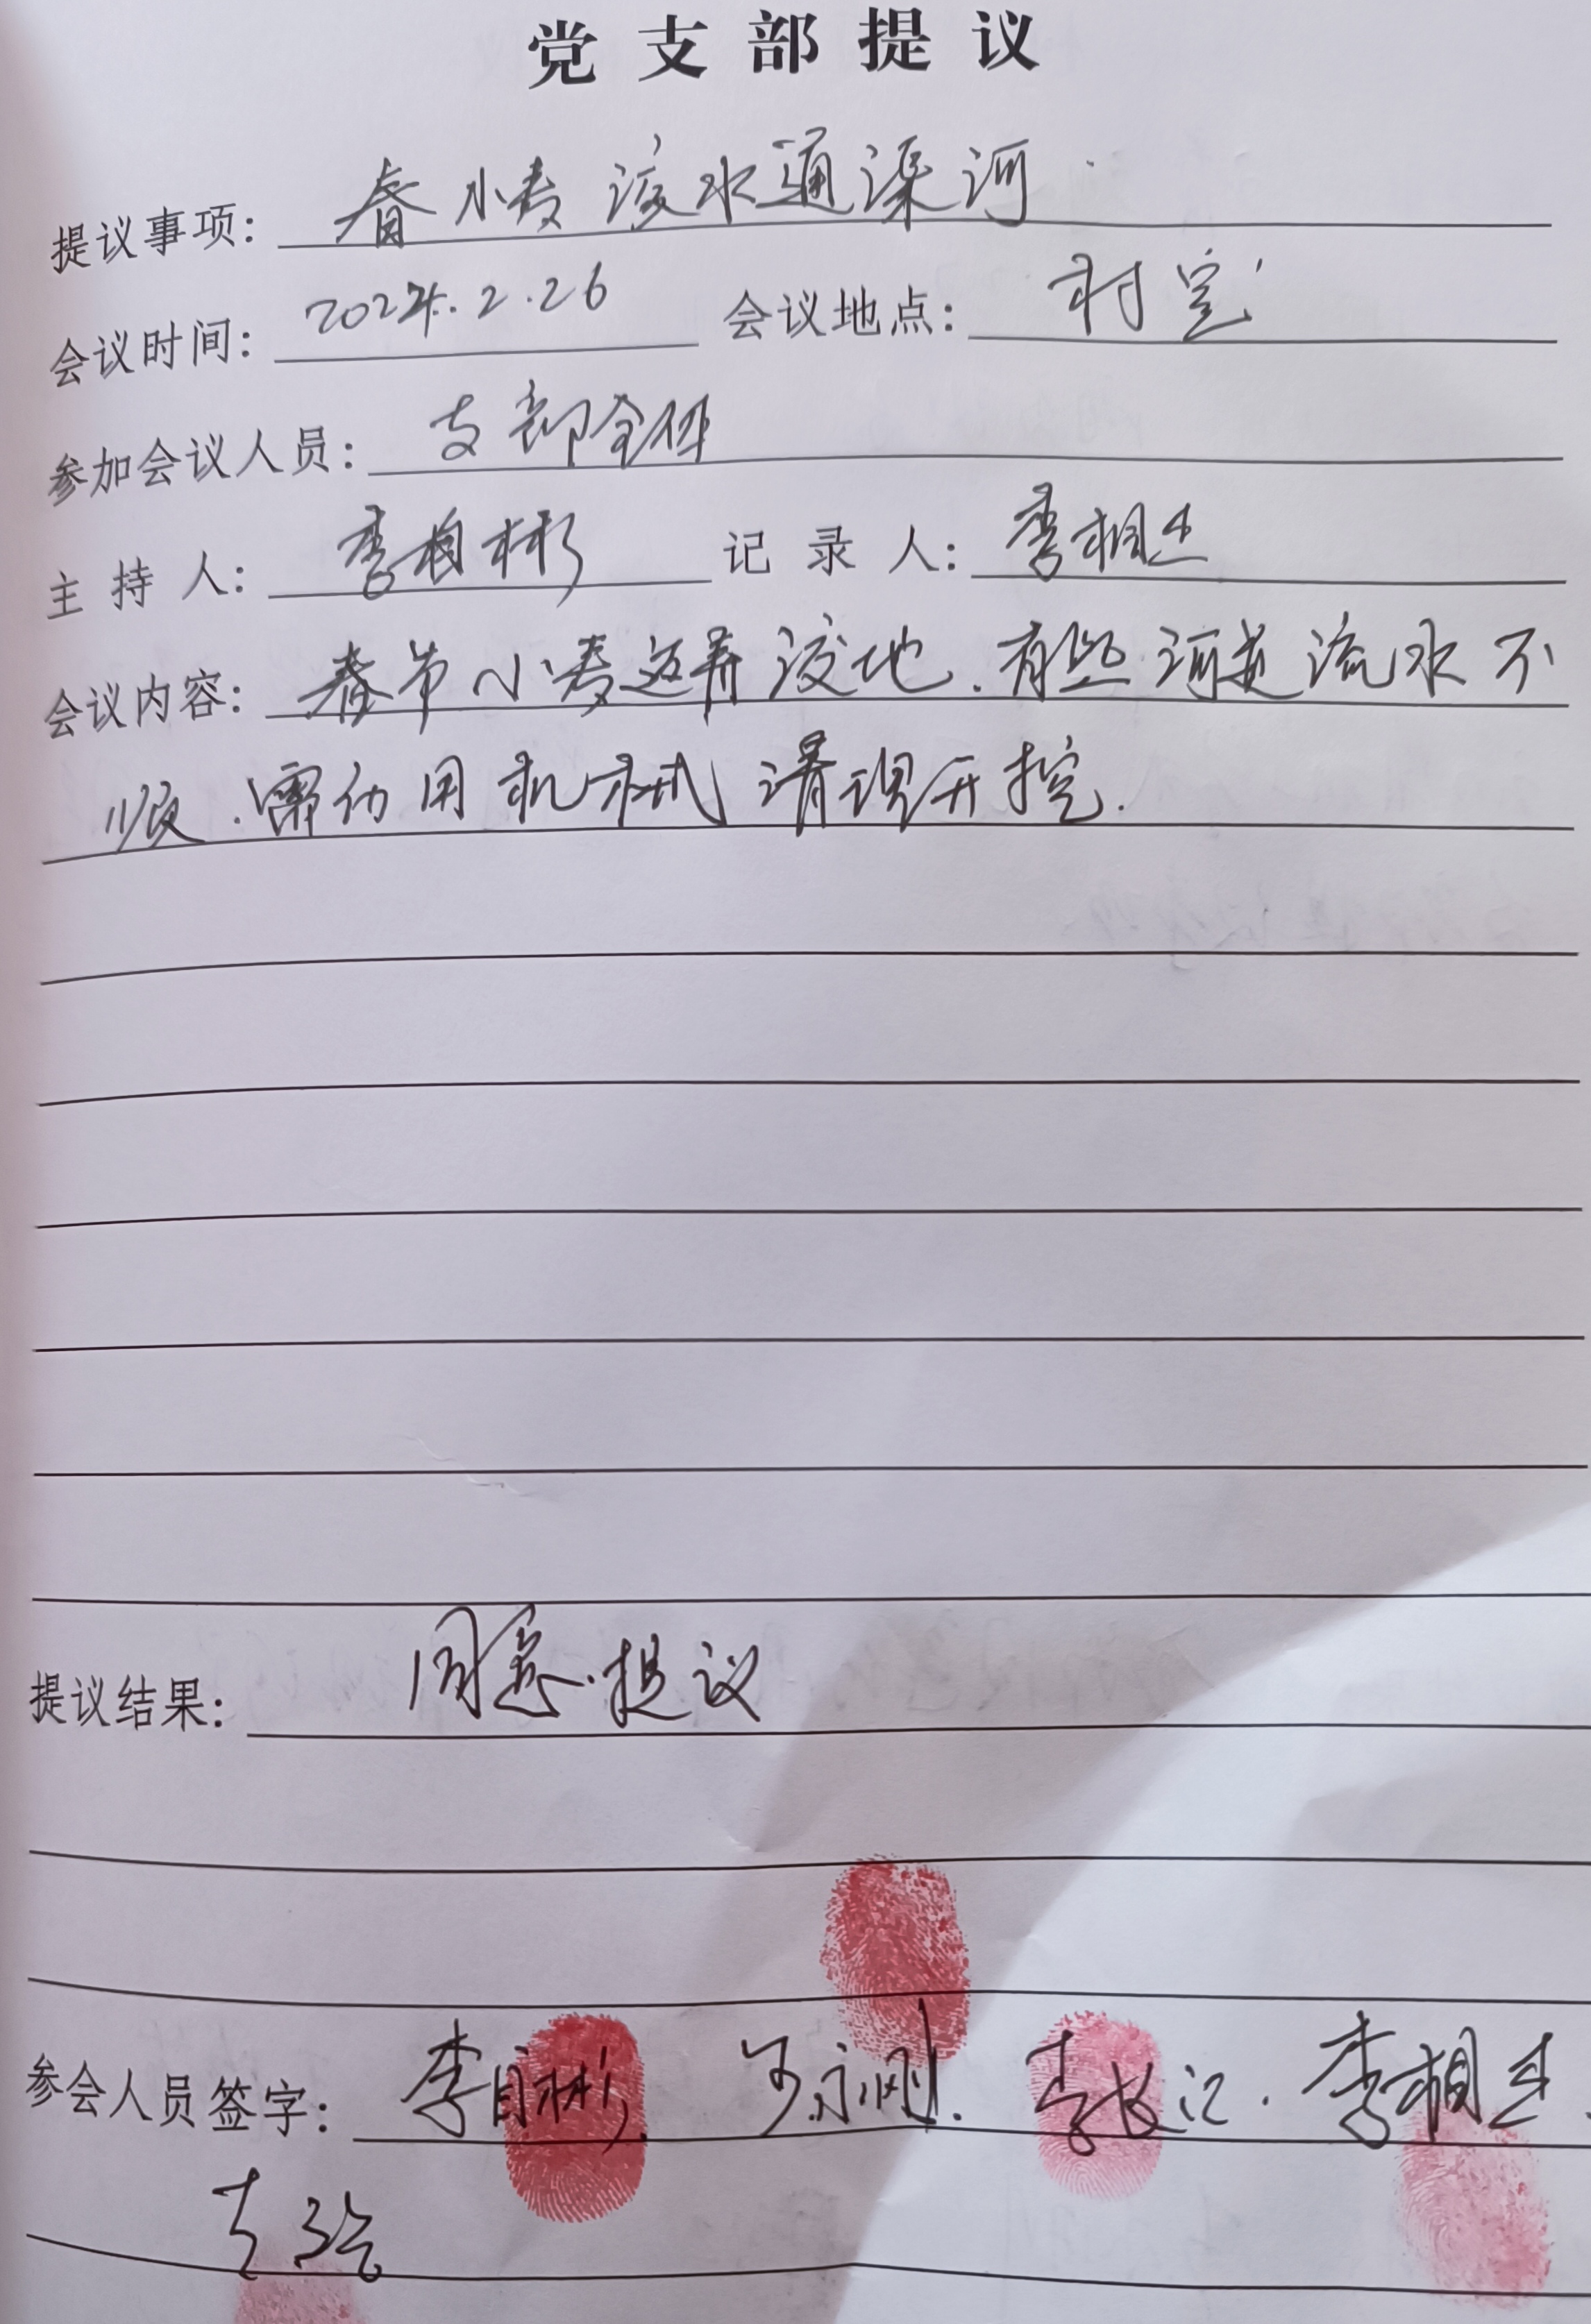 党支部提议
提议事项：春小麦浇水通渠河
会议时间：2024.2.26 会议地点：村室
参加会议人员：支部全体
主持人：李自彬 记录人：李相
会议内容：春节小麦返青浇地.有些河道流水不
顺.需功用机械清理开挖.
提议结果：同意提议
参会人员签字：李自彬 永刚. 李 记.李相
李